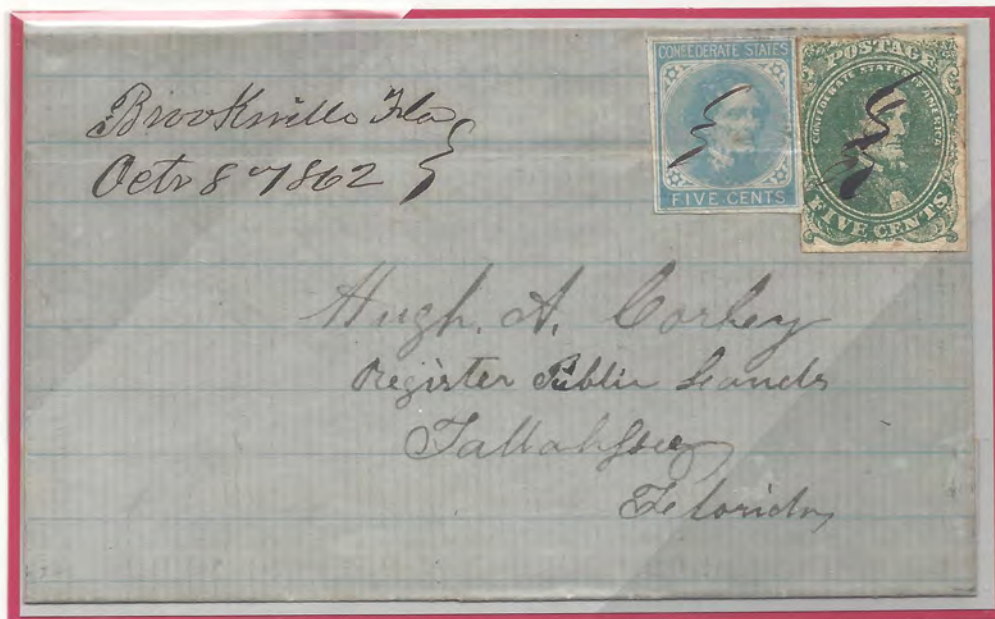 Brooksville Fla
Octr 8th 1862
CONFEDERATE STATES
FIVE CENTS
POSTAGE
CONFEDERATE STATES OF AMERICA
FIVE CENTS
Hugh. A. Corley
Register Public Lands
Tallahassee
Florida